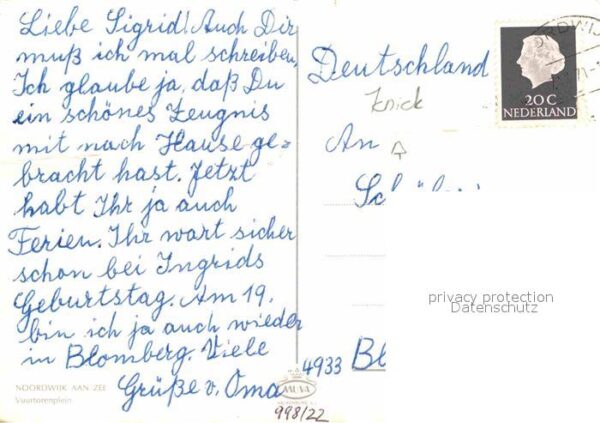 Liebe Sigrid! Auch Dir
muß ich mal schreiben.
Ich glaube ja, daß Du
ein schönes Zeugnis
mit nach Hause ge=
bracht hast. Jetzt
habt Ihr ja auch
Ferien. Ihr wart sicher
schon bei Ingrids
Geburtstag. Am 19.
bin ich ja auch wieder
in Blomberg. Viele
Grüße v. Oma
NOORDWIJK AAN ZEE
Vuurtorenplein.
998/22
Deutschland
Knick
An
4933 Bl
20 C
NEDERLAND
privacy protection
Datenschutz